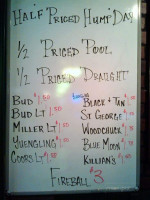 Half Priced Hump Day
1/2 Priced Pool
1/2 Priced Draught
Bud $1.50
Bud Lt $1.50
Miller Lt $1.50
Yuengling $1.50
Coors Lt $1.50
Black & Tan
St George
Woodchuck
Blue Moon
Killian's
Fireball $3